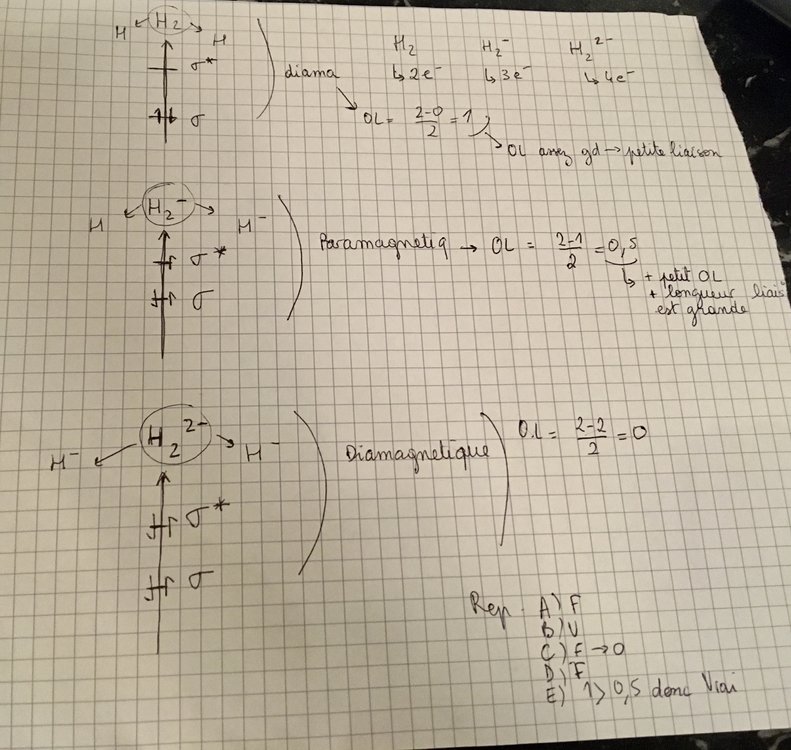 H₂
H H
σ*
σ
diama
H₂ H₂⁻ H₂²⁻
↳ 2e⁻ ↳ 3e⁻ ↳ 4e⁻
OL = 2-0/2 = 1
OL assez gd → petite liaison
H₂⁻
H H⁻
σ*
σ
Paramagnetiq → OL = 2-1/2 = 0,5
↳ + petit OL
+ longueur liais
est grande
H₂²⁻
H⁻ H⁻
σ*
σ
Diamagnetique
O.L = 2-2/2 = 0
Rep. A) F
B) V
C) F → 0
D) F
E) 1 > 0,5 donc Vrai